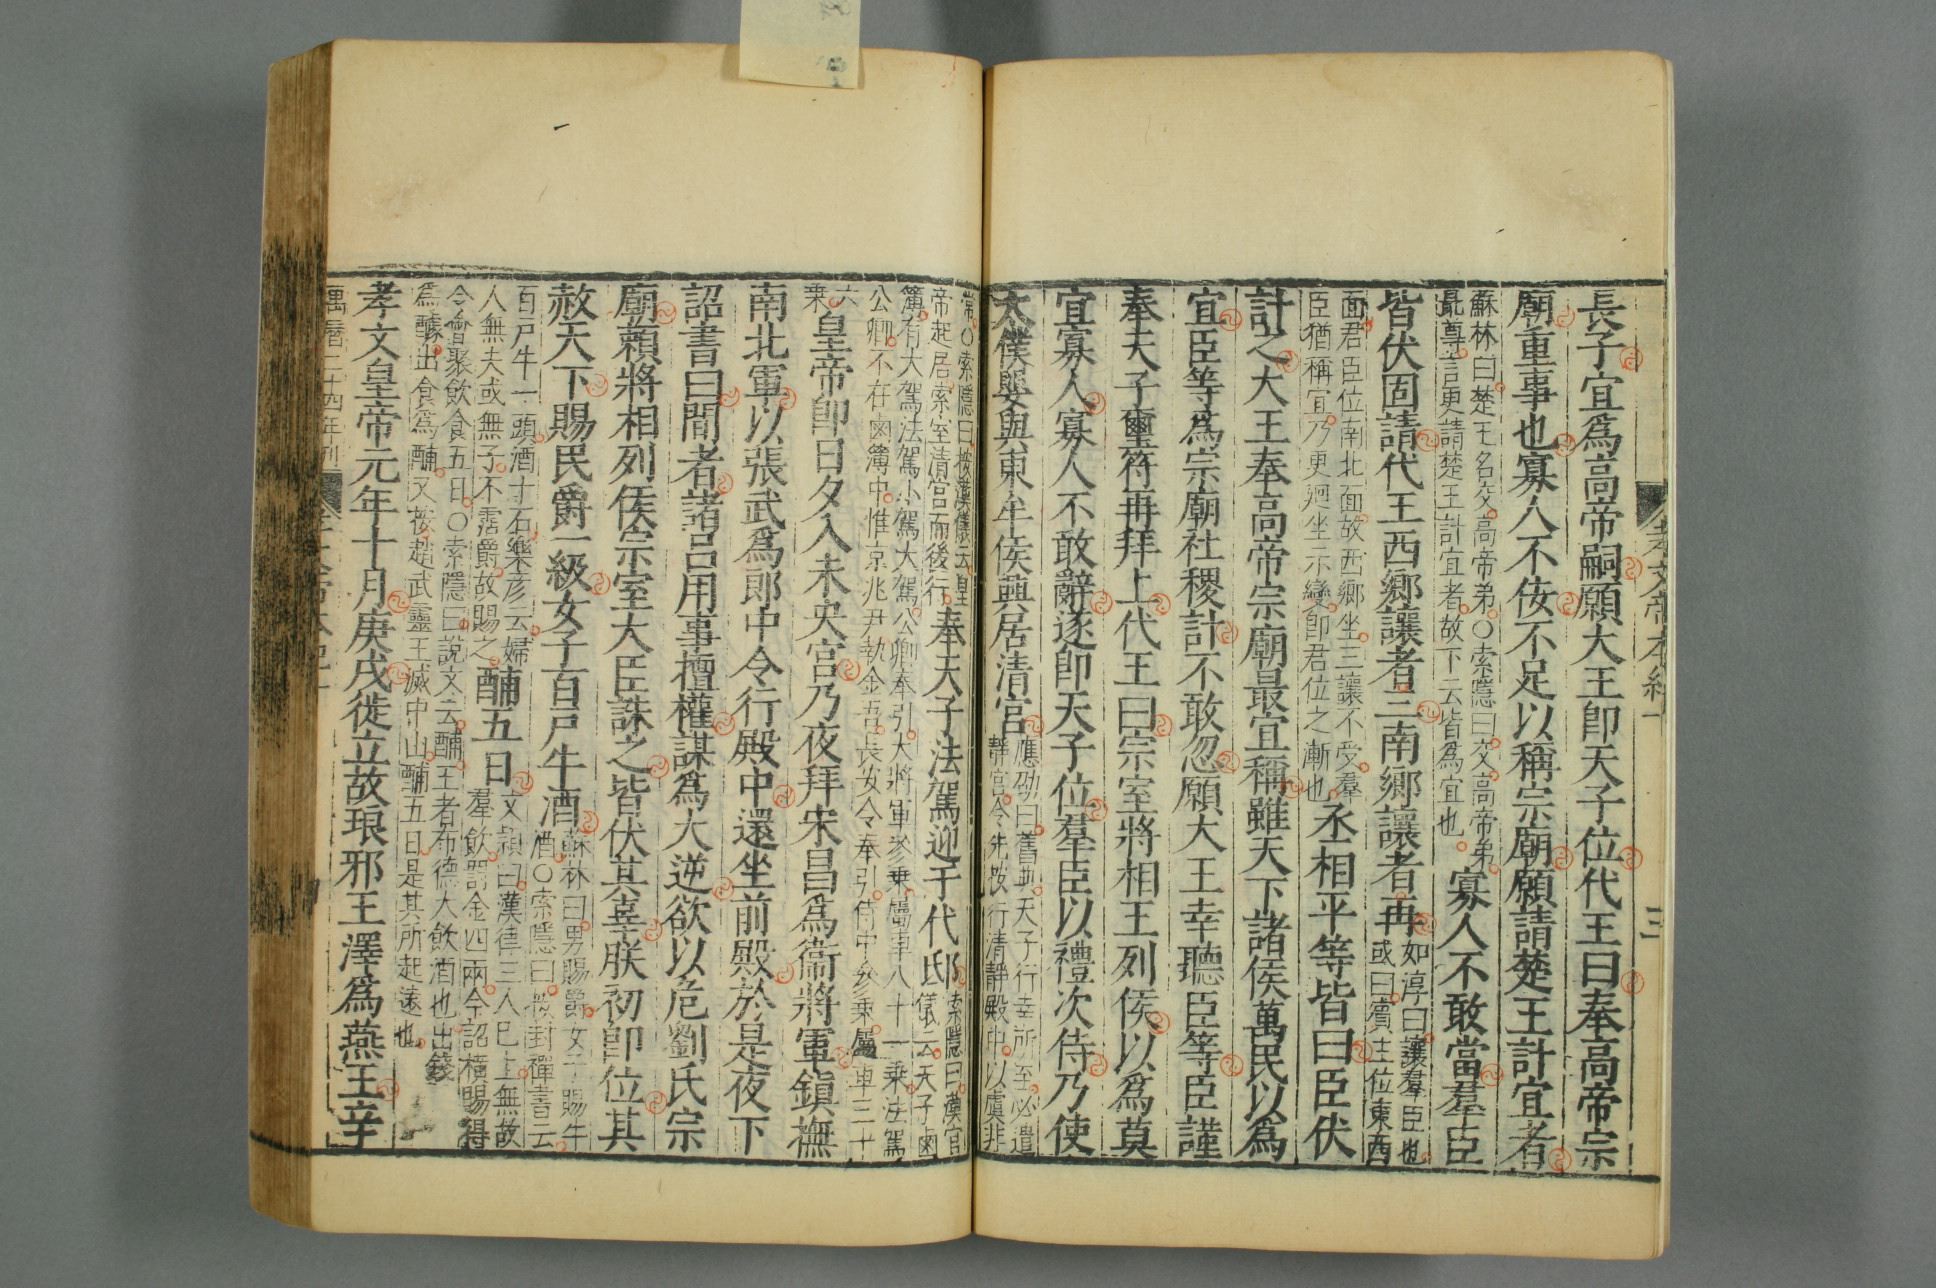 孝文帝本紀
三
長子宜爲高帝嗣願大王卽天子位代王曰奉高帝宗
廟重事也寡人不佞不足以稱宗廟願請楚王計宜者
蘇林曰楚王名交高帝弟〇索隱曰交高帝弟
最尊言更請楚王計宜者故下云皆爲宜也
寡人不敢當羣臣
皆伏固請代王西鄉讓者三南鄉讓者再
如淳曰讓羣臣也
或曰賓主位東西
面君臣位南北面故西鄉坐三讓不受羣
臣猶稱宜乃更廻坐示變卽君位之漸也
丞相平等皆曰臣伏
計之大王奉高帝宗廟最宜稱雖天下諸侯萬民以爲
宜臣等爲宗廟社稷計不敢忽願大王幸聽臣等臣謹
奉天子璽符再拜上代王曰宗室將相王列侯以爲莫
宜寡人寡人不敢辭遂卽天子位羣臣以禮次侍乃使
太僕嬰與東牟侯興居清宮
應劭曰舊典天子行幸所至必遣
靜宮令先按行清靜殿中以虞非
常〇索隱曰按漢儀云皇
帝起居索室清宮而後行
奉天子法駕迎于代邸
索隱曰漢官
儀云天子鹵
簿有大駕法駕小駕大駕公卿奉引大將軍參乗屬車八十一乗法駕
公卿不在鹵簿中惟京兆尹執金吾長安令奉引侍中參乗屬車三十
六
乗
皇帝卽日夕入未央宮乃夜拜宋昌爲衞將軍鎮撫
南北軍以張武爲郎中令行殿中還坐前殿於是夜下
詔書曰間者諸呂用事擅權謀爲大逆欲以危劉氏宗
廟賴將相列侯宗室大臣誅之皆伏其辜朕初卽位其
赦天下賜民爵一級女子百戸牛酒
蘇林曰男賜爵女子賜牛
酒〇索隱曰按封禪書云
百戸牛一頭酒十石樂彦云婦
人無夫或無子不霑爵故賜之
酺五日
文穎曰漢律三人已上無故
羣飲罰金四兩今詔橫賜得
令會聚飲食五日〇索隱曰說文云酺王者布德大飲酒也出錢
爲醵出食爲酺又按趙武靈王滅中山酺五日是其所起遠也
孝文皇帝元年十月庚戌徙立故琅邪王澤爲燕王辛
萬曆二十四年刊